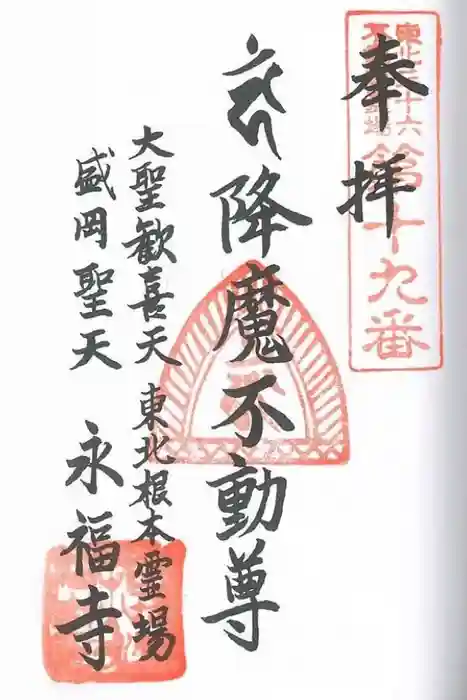 奉拝
東北三十六
不動霊場
第十九番
降魔不動尊
大聖歓喜天 東北根本霊場
盛岡聖天 永福寺